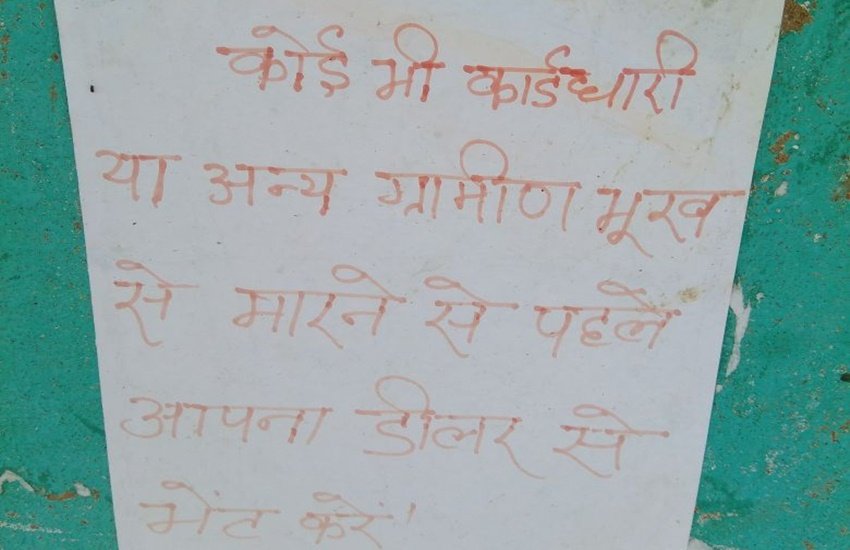 कोई भी कार्डधारी
या अन्य ग्रामीण भूख
से मारने से पहले
आपना डीलर से
भेंट करें!